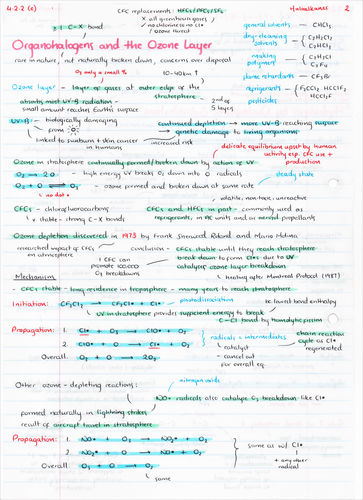 4.2.2 (c)
CFC replacements: HFCs/HCFCs/SF6
Haloalkanes
2
≥ 1 C-X bond
x all greenhouse gases
x no chlorine = no Cl•
/ ozone threat
Organohalogens and the Ozone Layer
rare in nature, not naturally broken down, concerns over disposal
general solvents – CHCl3
dry-cleaning solvents – C2H2Cl2
C2HCl3
making polymers – C2H3Cl
C2F4
flame retardants – CF3Br
refrigerants – F2CCl2, HCClF2
HCCl2F
pesticides
O3 only a small %
10-40km
Ozone layer – layer of gases at outer edge of the stratosphere
absorbs most UV-B radiation –
small amount reaches Earth's surface
2nd of 5 layers
UV-B – biologically damaging
from
linked to sunburn + skin cancer in humans
increased risk
continued depletion → more UV-B reaching surface
→ genetic damage to living organisms
delicate equilibrium upset by human activity esp. CFC use + production
Ozone in stratosphere continually formed/broken down by action of UV
O2 → 2O – high energy UV breaks O2 down into O radicals
steady state
O2 + O ⇌ O3 – ozone formed and broken down at same rate
no dot •
volatile, non-toxic, unreactive
CFCs – chlorofluorocarbons
↳ stable – strong C-X bonds
CFCs and HCFCs in past – commonly used as refrigerants, in AC units and as aerosol propellants
Ozone depletion discovered in 1973 by Frank Sherwood Roland and Mario Molina
researched impact of CFCs on atmosphere
1 CFC can promote 100,000 O3 breakdowns
conclusion – CFCs stable until they reach stratosphere
break down to form Cl•s due to UV
catalyses ozone layer breakdown
↳ healing after Montreal Protocol (1987)
Mechanism
– CFCs stable: long residence in troposphere – many years to reach stratosphere
Initiation: CF2Cl2 → CF2Cl• + Cl•
photodissociation
UV in stratosphere provides sufficient energy to break C-Cl bond by homolytic fission
bc lowest bond enthalpy
Propagation: 1. Cl• + O3 → ClO• + O2
2. ClO• + O → Cl• + O2
Overall: O3 + O → 2O2
radicals = intermediates
↳ catalyst
– cancel out for overall eq.
chain reaction
cycle as Cl• regenerated
Other ozone-depleting reactions:
nitrogen oxide
NO• radicals also catalyse O3 breakdown like Cl•
formed naturally in lightning strikes
result of aircraft travel in stratosphere
Propagation: 1. NO• + O3 → NO2• + O2
2. NO2• + O → NO• + O2
Overall: O3 + O → 2O2
same
same as w/ Cl•
+ any other radical